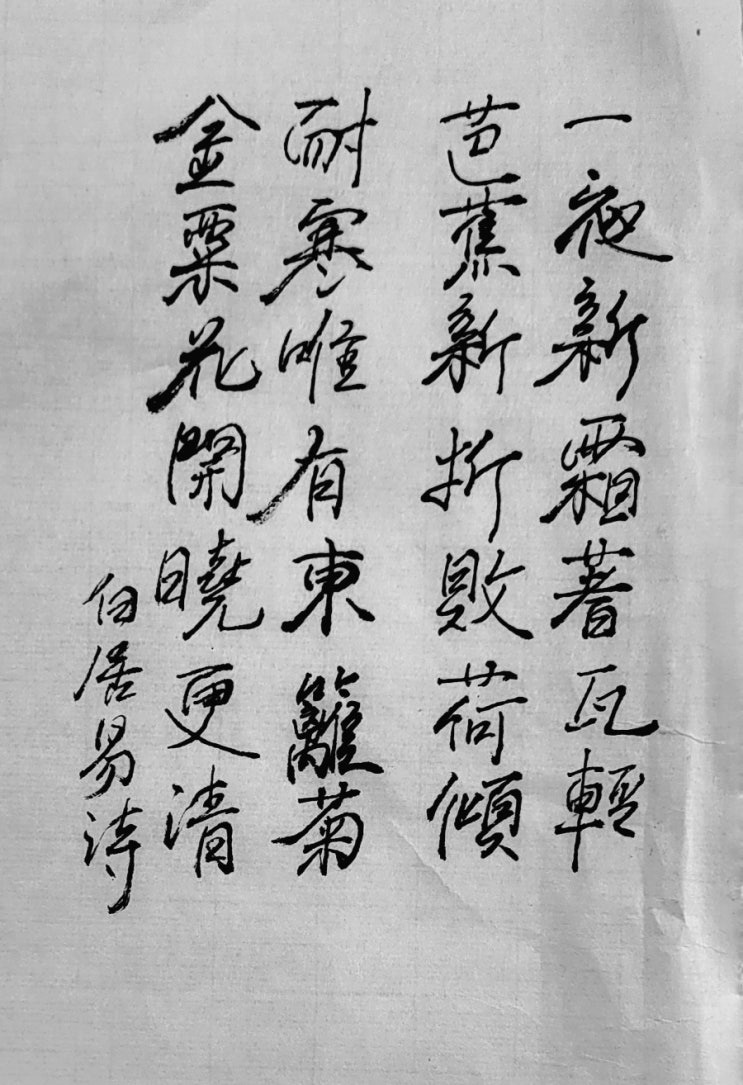 一夜新霜著瓦輕
芭蕉新折敗荷傾
耐寒唯有東籬菊
金粟花開曉更清
白居易詩